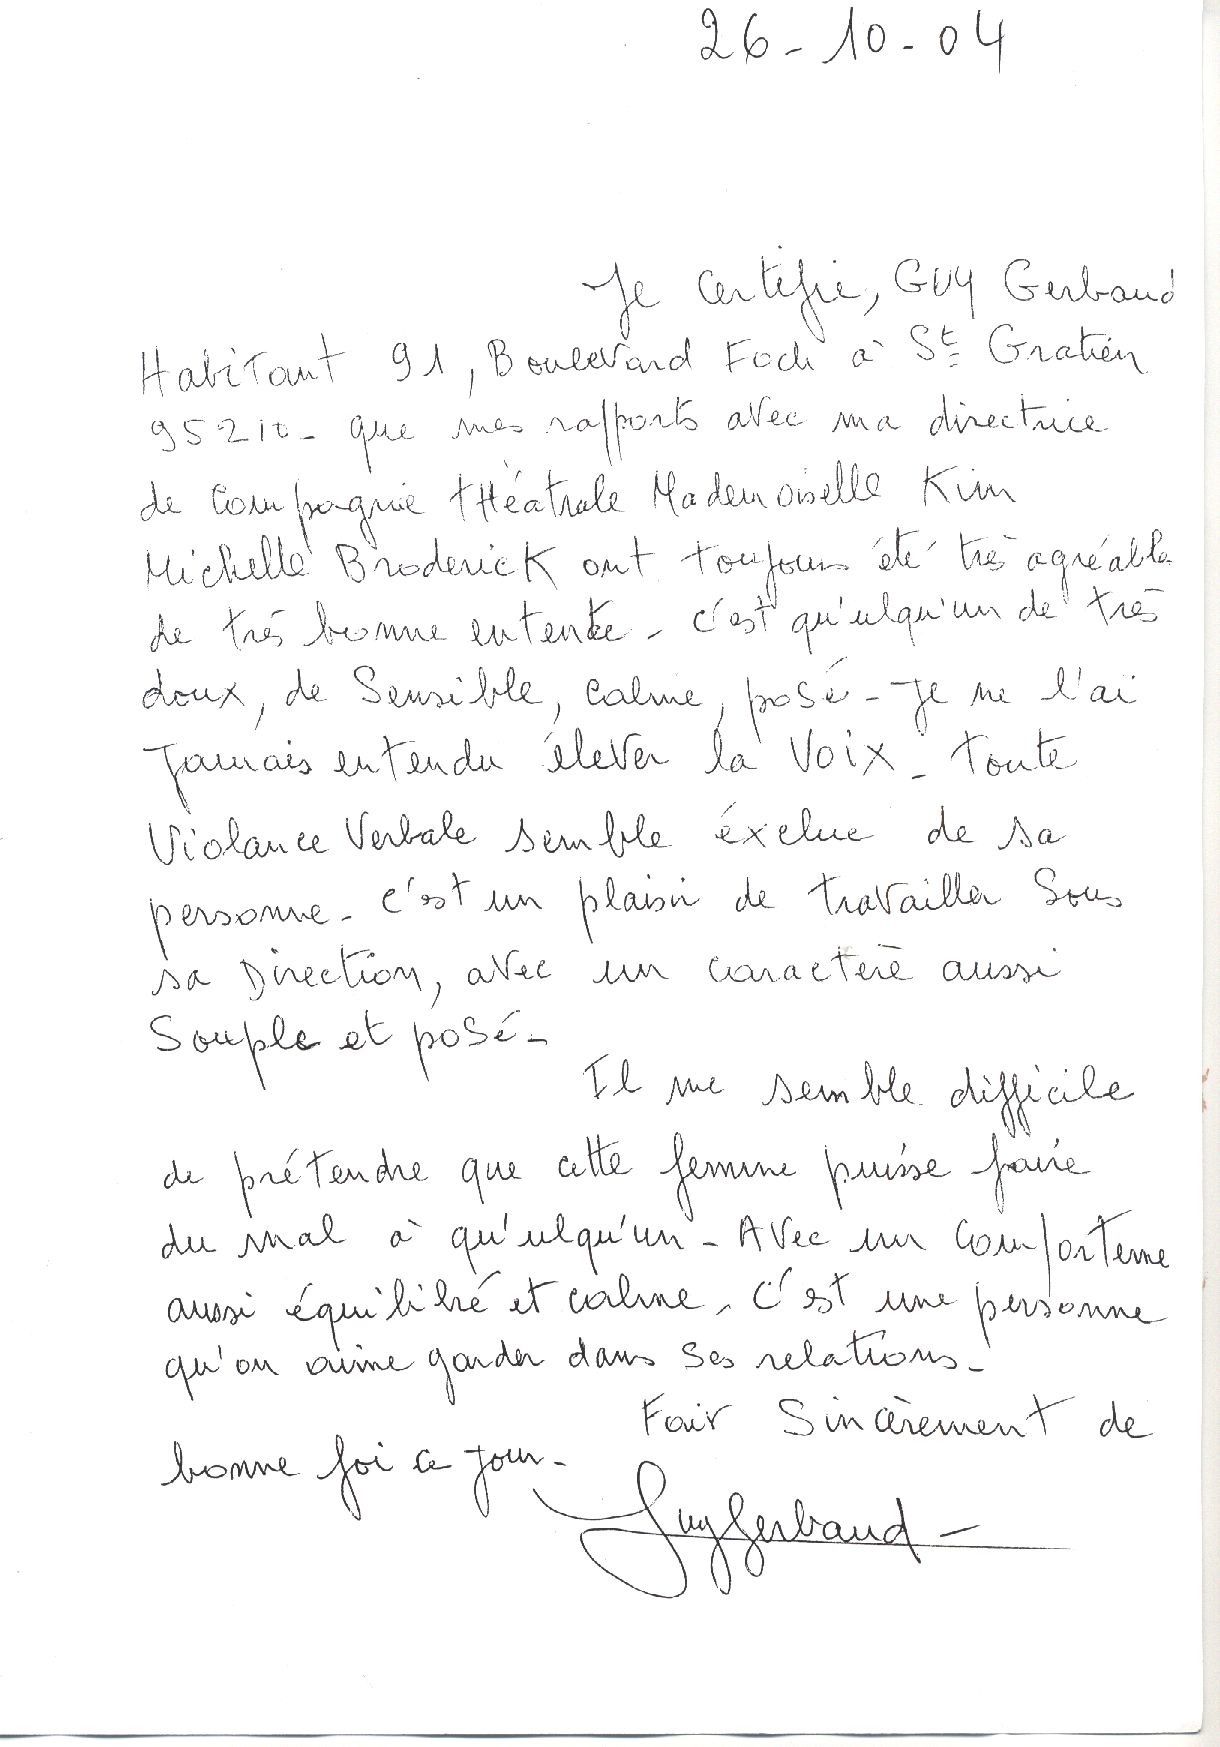 26-10-04
Je Certifie, GUY Gerbaud
Habitant 91, Boulevard Foch à St Gratien
95210- que mes rapports avec ma directrice
de Compagnie tHéatrale Mademoiselle Kim
Michelle BrodericK ont toujours été très agréable
de très bonne entente - c'est qu'ulqu'un de très
doux, de Sensible, calme, posé - Je ne l'ai
Jamais entendu élever la Voix - toute
Violance Verbale semble éxclue de sa
personne - c'est un plaisir de travailler Sous
sa Direction, avec un caractère aussi
Souple et posé -
Il me semble difficile
de prétendre que cette femme puisse faire
du mal à qu'ulqu'un - Avec un Comporteme
aussi équilibré et calme, C'est une personne
qu'on aime garder dans ses relations -
Fait Sincèrement de
bonne foi ce Jour -
Guy Gerbaud -